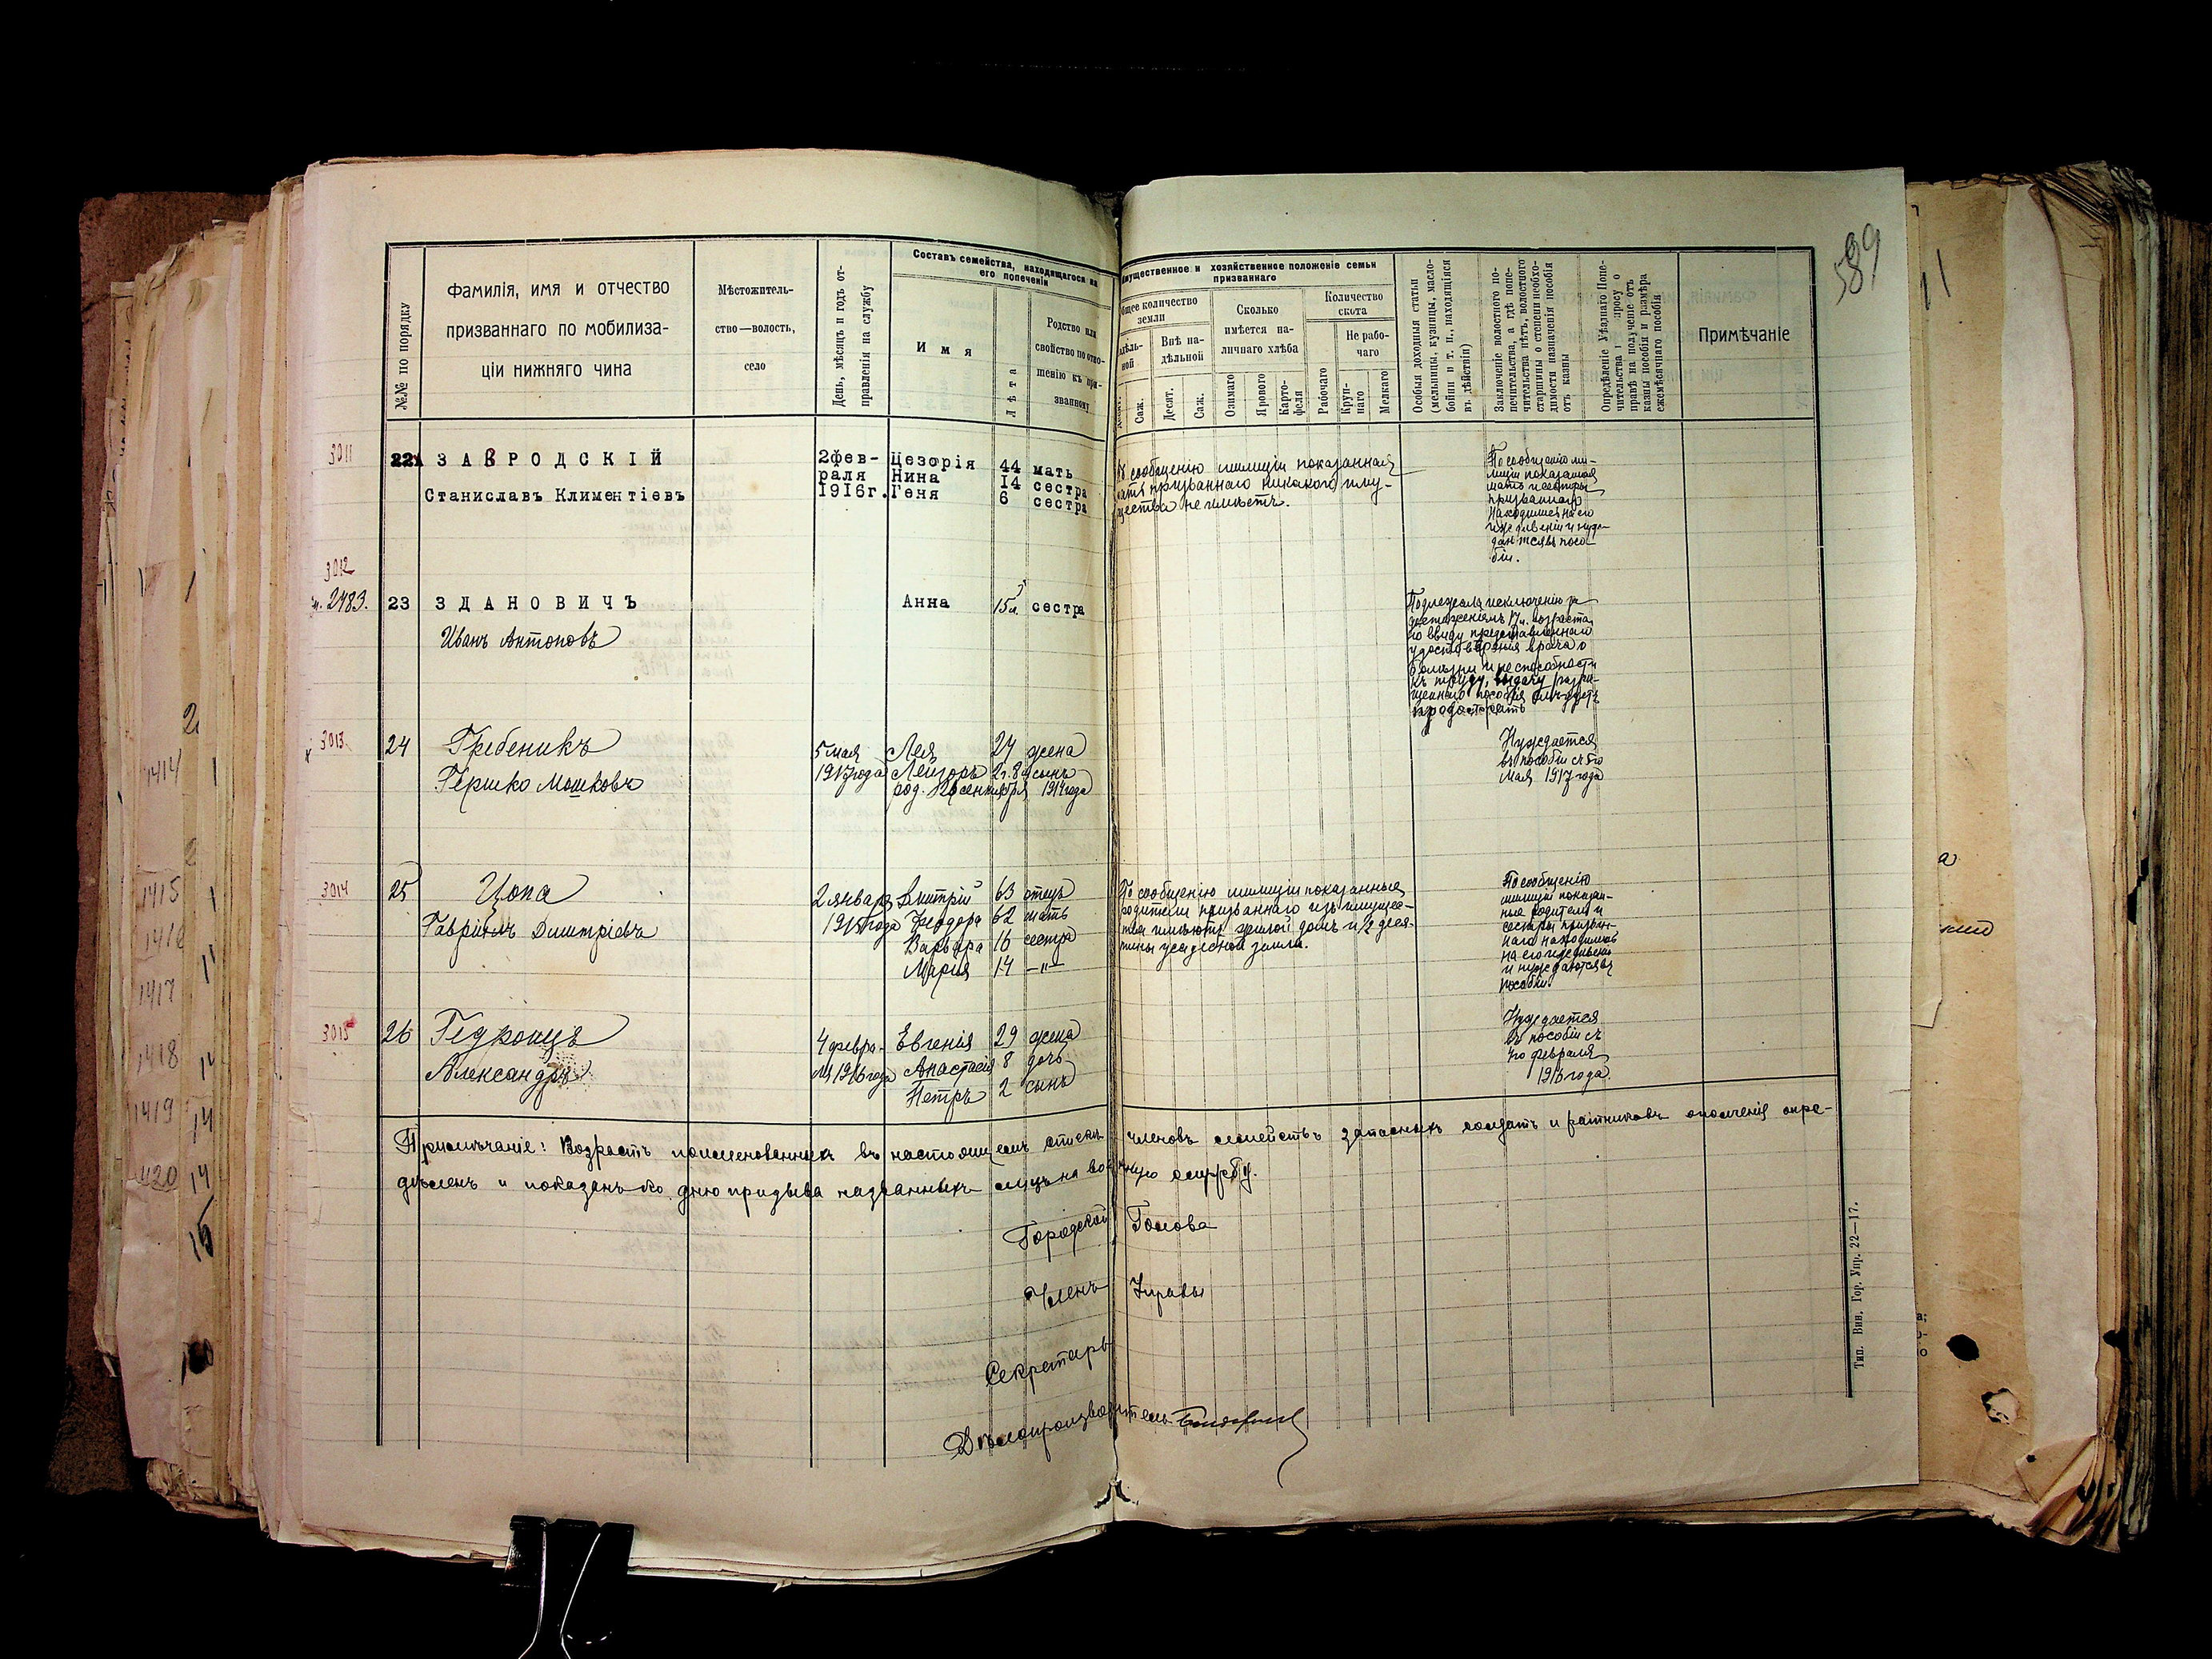 589
№№ по порядку
Фамилія, имя и отчество
призваннаго по мобилиза-
ціи нижняго чина
Мѣстожитель-
ство—волость,
село
День, мѣсяцъ и годъ от-
правленія на службу
Составъ семейства, находящагося на
его попеченіи
Имя
Лѣта
Родство или
свойство по отно-
шенію къ при-
званному
имущественное и хозяйственное положеніе семьи
призваннаго
Общее количество
земли
Надѣль-
ной
Внѣ на-
дѣльной
Саж.
Десят.
Саж.
Сколько
имѣется на-
личнаго хлѣба
Озимаго
Ярового
Карто-
феля
Количество
скота
Рабочаго
Не рабо-
чаго
Круп-
наго
Мелкаго
Особыя доходныя статьи
(мельницы, кузницы, масло-
бойни и т. п., находящіяся
въ дѣйствіи)
Заключеніе волостного по-
печительства, а гдѣ попе-
чительства нѣтъ, волостного
старшины о степени необхо-
димости назначенія пособія
отъ казны
Опредѣленіе Уѣзднаго Попе-
чительства просу о
правѣ на полученіе отъ
казны пособія и размѣра
ежемѣсячнаго пособія
Примѣчаніе
3011
22 ЗАВРОДСКІЙ
Станиславъ Климентіевъ
2 фев-
раля
1916г.
Цезорія 44 мать
Нина 14 сестра
Геня 6 сестра
По сообщенію милиціи показанная
мать призваннаго никакого иму-
щества не имѣетъ.
По сообщенію ми-
лиціи показанная
мать и сестры
призваннаго
находились на его
иждивеніи и нуж-
даются въ посо-
біи.
3012
2483.
23 ЗДАНОВИЧЪ
Иванъ Антоновъ
Анна 15 л. сестра
Подлежала исключенію за
достиженіемъ 17 л. возраста
но ввиду представленнаго
удостовѣренія врача о
болѣзни и неспособности
къ труду, выдачу разрѣ-
шеннаго пособія слѣдуетъ
продолжать
3013
24 Гребеникъ
Гершко Мошковъ
5 мая
1917 года
Лея 24 жена
Лейзоръ 2 г. 8 м сынъ
род. сентября 1914 года
Нуждается
въ пособіи съ 5го
мая 1917 года
3014
25 Цопа
Гавріилъ Димитріевъ
2 января
1915 года
Дмитрій 63 отецъ
Феодора 62 мать
Варвара 16 сестра
Марія 14 —"—
По сообщенію милиціи показанные
родители призваннаго изъ имуще-
ства имѣютъ жилой домъ и 1/2 деся-
тины усадебной земли.
По сообщенію
милиціи показан-
ные родители и
сестры призван-
наго находились
на его иждивеніи
и нуждаются въ
пособіи.
3015
26 Гедронцъ
Александръ
4 февра-
ля 1916 года
Евгенія 29 жена
Анастасія 8 дочь
Петръ 2 сынъ
Нуждается
въ пособіи съ
4го февраля
1916 года.
Примѣчаніе: Возрастъ поименованныхъ въ настоящемъ спискѣ членовъ семействъ запасныхъ солдатъ и ратниковъ ополченія опре-
дѣленъ и показанъ ко дню призыва названныхъ лицъ на военную службу.
Городской Голова
Членъ Управы
Секретарь
Дѣлопроизводитель
Тип. Вин. Гор. Упр. 22—17.
1414
1415
1416
1417
1418
1419
1420